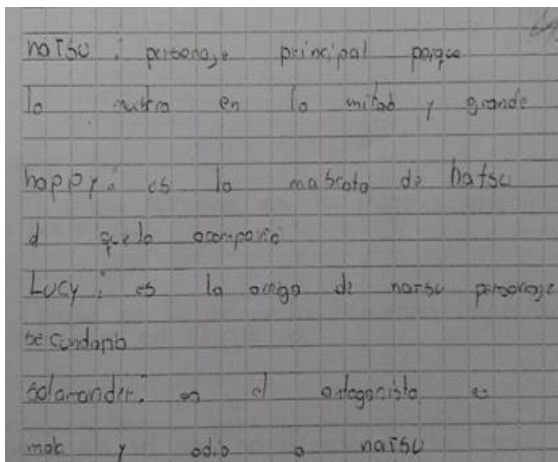 natsu : personaje principal porque
lo mutra en la mitad y grande
happy : es la mascota de natsu
el que lo acompaña
Lucy : es la amiga de natsu personaje
secundario
salamander : es el antagonista es
malo y odia a natsu